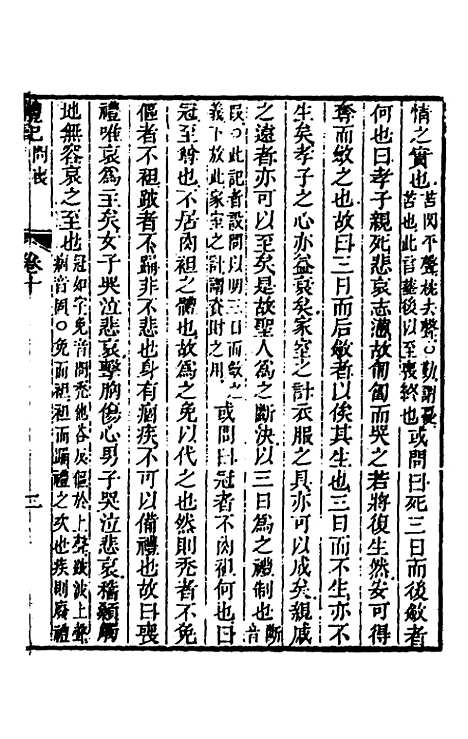 情之實也苦閔平聲枕去聲○勤謂憂苦也此言葬後以至喪終也或問曰死三日而後斂者
何也曰孝子親死悲哀志懣故匍匐而哭之若將復生然安可得
奪而斂之也故曰三日而后斂者以俟其生也三日而不生亦不
生矣孝子之心亦益衰矣家室之計衣服之具亦可以成矣親戚
之遠者亦可以至矣是故聖人為之斷決以三日為之禮制也斷音
段○此記者設問以明三日而斂之義下放此家室之計謂資財之用或問曰冠者不肉袒何也曰
冠至尊也不居肉袒之體也故為之免以代之也然則禿者不免
傴者不袒跛者不踊非不悲也身有痼疾不可以備禮也故曰喪
禮唯哀為主矣女子哭泣悲哀擊胸傷心男子哭泣悲哀稽顙觸
地無容哀之至也冠如字免音問禿他各反傴於上聲跛波上聲痼音固○免而袒袒而踊禮之次也疾則廢禮
禮記 問喪 卷十 三